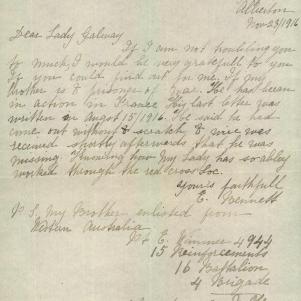 Alberton
Nov 23/1916
Dear Lady Galway
If I am not troubling you
to much I would be very gratefull to you
if you could find out for me if my
Brother is a prisoner of War. He had been
in action in France His last letter was
written on August 15/1916. He said he had
come out without a scratch & news was
received shortly afterwards that he was
missing Knowing how my Lady has so ably
worked through the red cross Soc.
yours faithfull
E. Bennett
P S. My Brother enlisted from
Western Australia
Pt E.
4944
15 Reinforcements
16 Battalion
4 Brigade